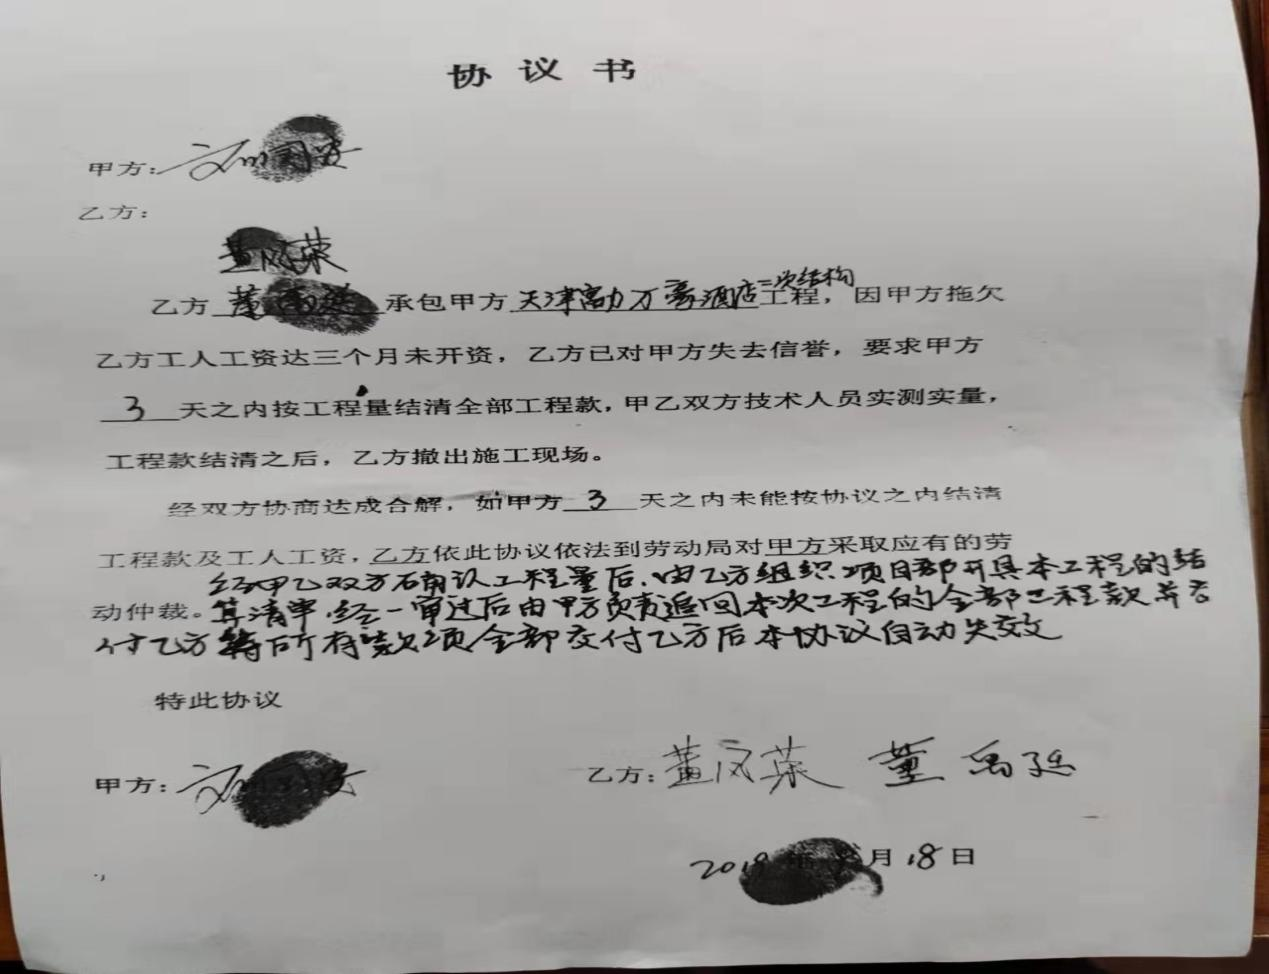 协议书
甲方：
乙方：
黄凤荣
乙方 董禹延 承包甲方 天津富力万豪酒店二次结构工程，因甲方拖欠
乙方工人工资达三个月未开资，乙方已对甲方失去信誉，要求甲方
3 天之内按工程量结清全部工程款，甲乙双方技术人员实测实量，
工程款结清之后，乙方撤出施工现场。
经双方协商达成合解，如甲方 3 天之内未能按协议之内结清
工程款及工人工资，乙方依此协议依法到劳动局对甲方采取应有的劳
动仲裁。
经甲乙双方确认工程量后，由乙方组织项目部开具本工程的结
算清单，经一审过后由甲方负责追回本次工程的全部工程款并支
付乙方 待所有款项全部交付乙方后本协议自动失效
特此协议
甲方：
乙方：黄凤荣 董禹延
2019年 月18日